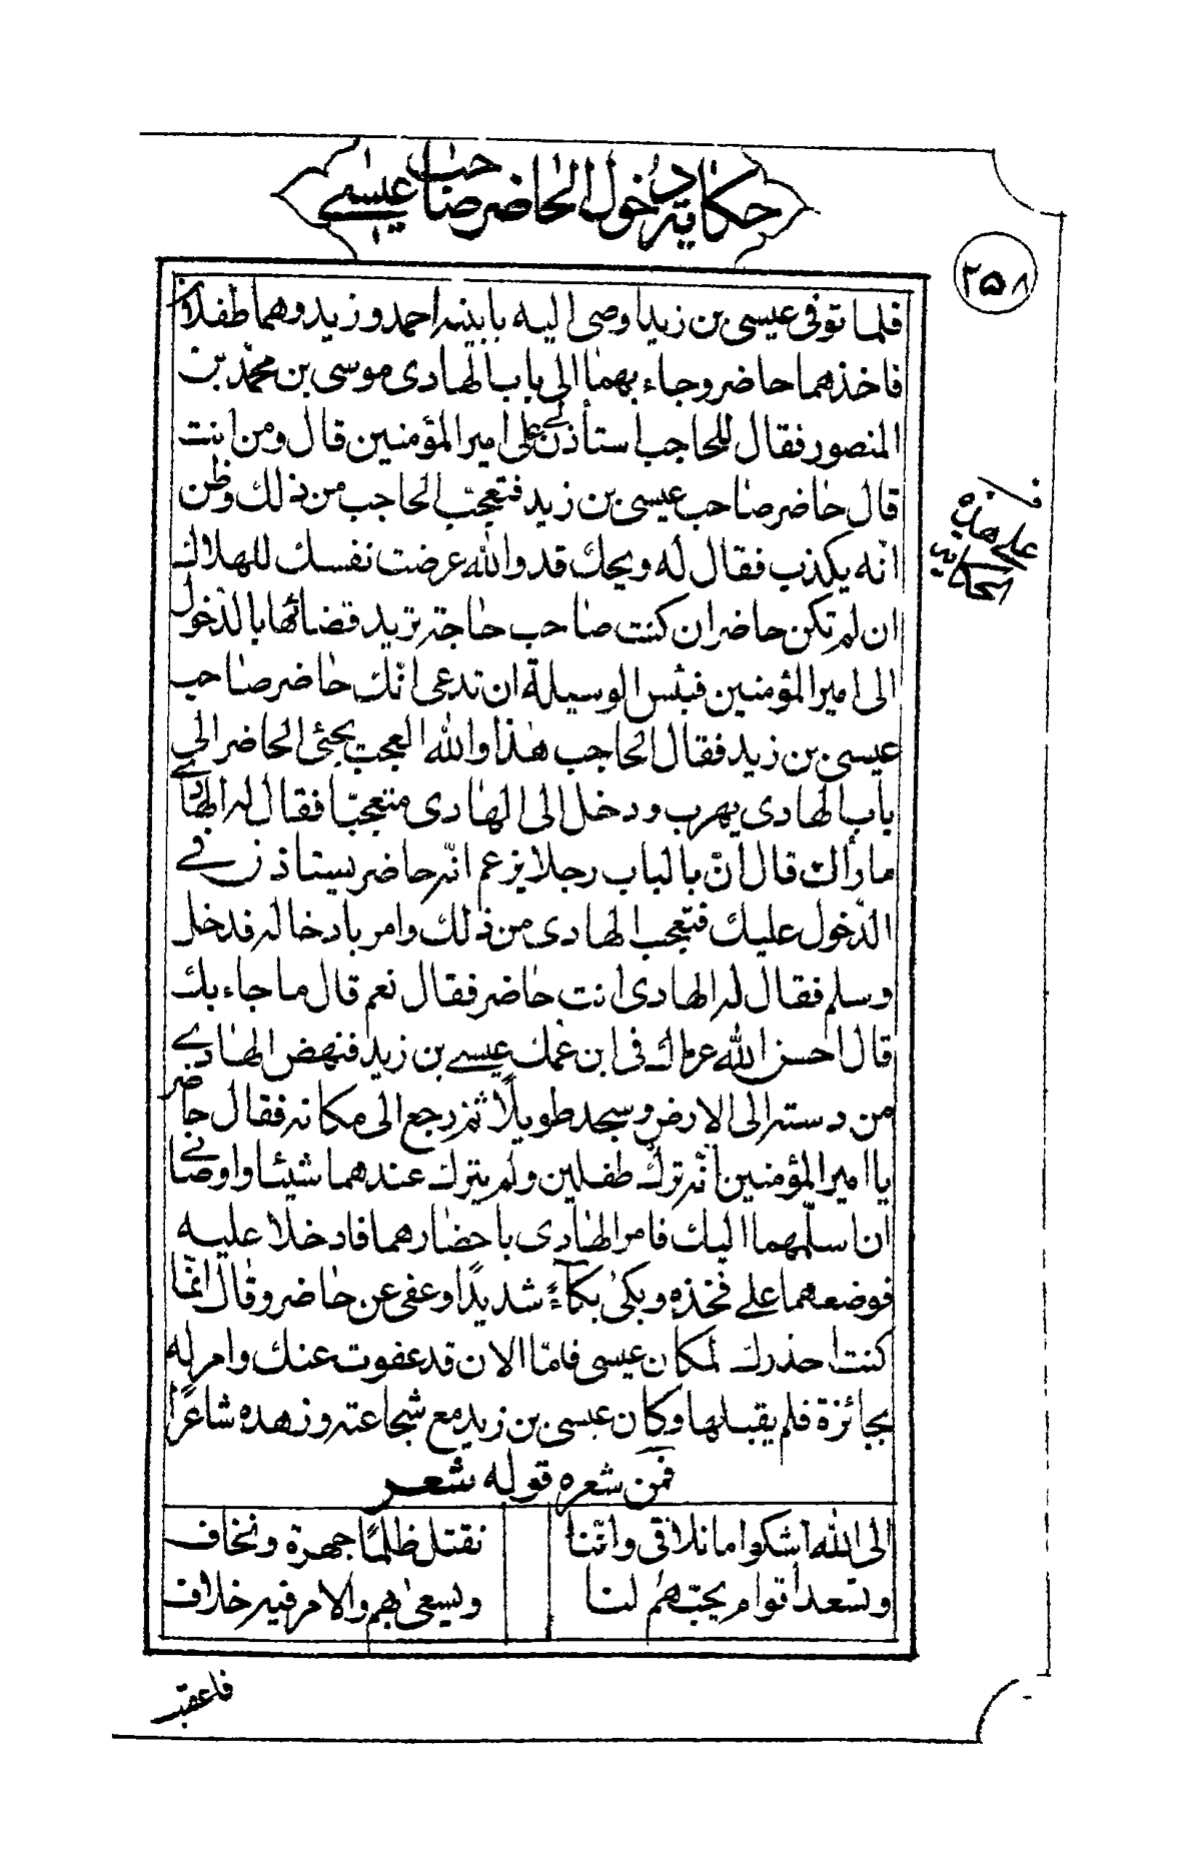 حكاية دخول الحاضر صاحب عيسى
٢٥٨
فلما توفى عيسى بن زيد اوصى اليه بابنيه احمد و زيد وهما طفلان
فاخذهما حاضر وجاء بهما الى باب الهادى موسى بن محمد بن
المنصور فقال للحاجب استأذن لى على امير المؤمنين قال ومن انت
قال حاضر صاحب عيسى بن زيد فتعجب الحاجب من ذلك وظن
انه يكذب فقال له ويحك قد والله عرضت نفسك للهلاك
ان لم تكن حاضر ان كنت صاحب حاجة تريد قضائها بالدخول
الى امير المؤمنين فبئس الوسيلة ان تدعى انك حاضر صاحب
عيسى بن زيد فقال الحاجب هذا والله العجب يجئى الحاضر الى
باب الهادى يهرب ودخل الى الهادى متعجبا فقال له الهادى
ما رأك قال انّ بالباب رجلا يزعم انّه حاضر يستاذن فى
الدّخول عليك فتعجب الهادى من ذلك وامر بادخاله فدخل
وسلم فقال له الهادى انت حاضر فقال نعم قال ما جاء بك
قال احسن الله عزاك فى ابن عمك عيسى بن زيد فنهض الهادى
من دسته الى الارض وسجد طويلًا ثم رجع الى مكانه فقال حاضر
يا امير المؤمنين انّه ترك طفلين ولم يترك عندهما شيئا واوصانى
ان اسلّمهما اليك فامر الهادى باحضارهما فادخلا عليه
فوضعهما على فخذه وبكى بكآءً شديدًا وعفى عن حاضر وقال انّما
كنت احذرك لمكان عيسى فامّا الان قد عفوت عنك وامر له
بجائزة فلم يقبلها وكان عيسى بن زيد مع شجاعته وزهده شاعرًا
فمن شعره قوله شعر
الى الله اشكوا ما نلاقى وانّنا نقتل ظلمًا جهرة ونخاف
وتسعد اقوام بحبّهم لنا ونسعى بهم والامر فيه خلاف
على هذه
الحكاية